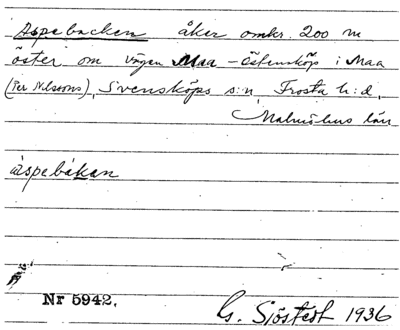 Aspebacken åker omkr. 200 m
öster om vägen Maa - Östensköp i Maa
(Per Nilssons), Svensköps s:n, Frosta h:d,
Malmöhus län
àspebákan
Nr 5942.
G. Sjöstedt 1936